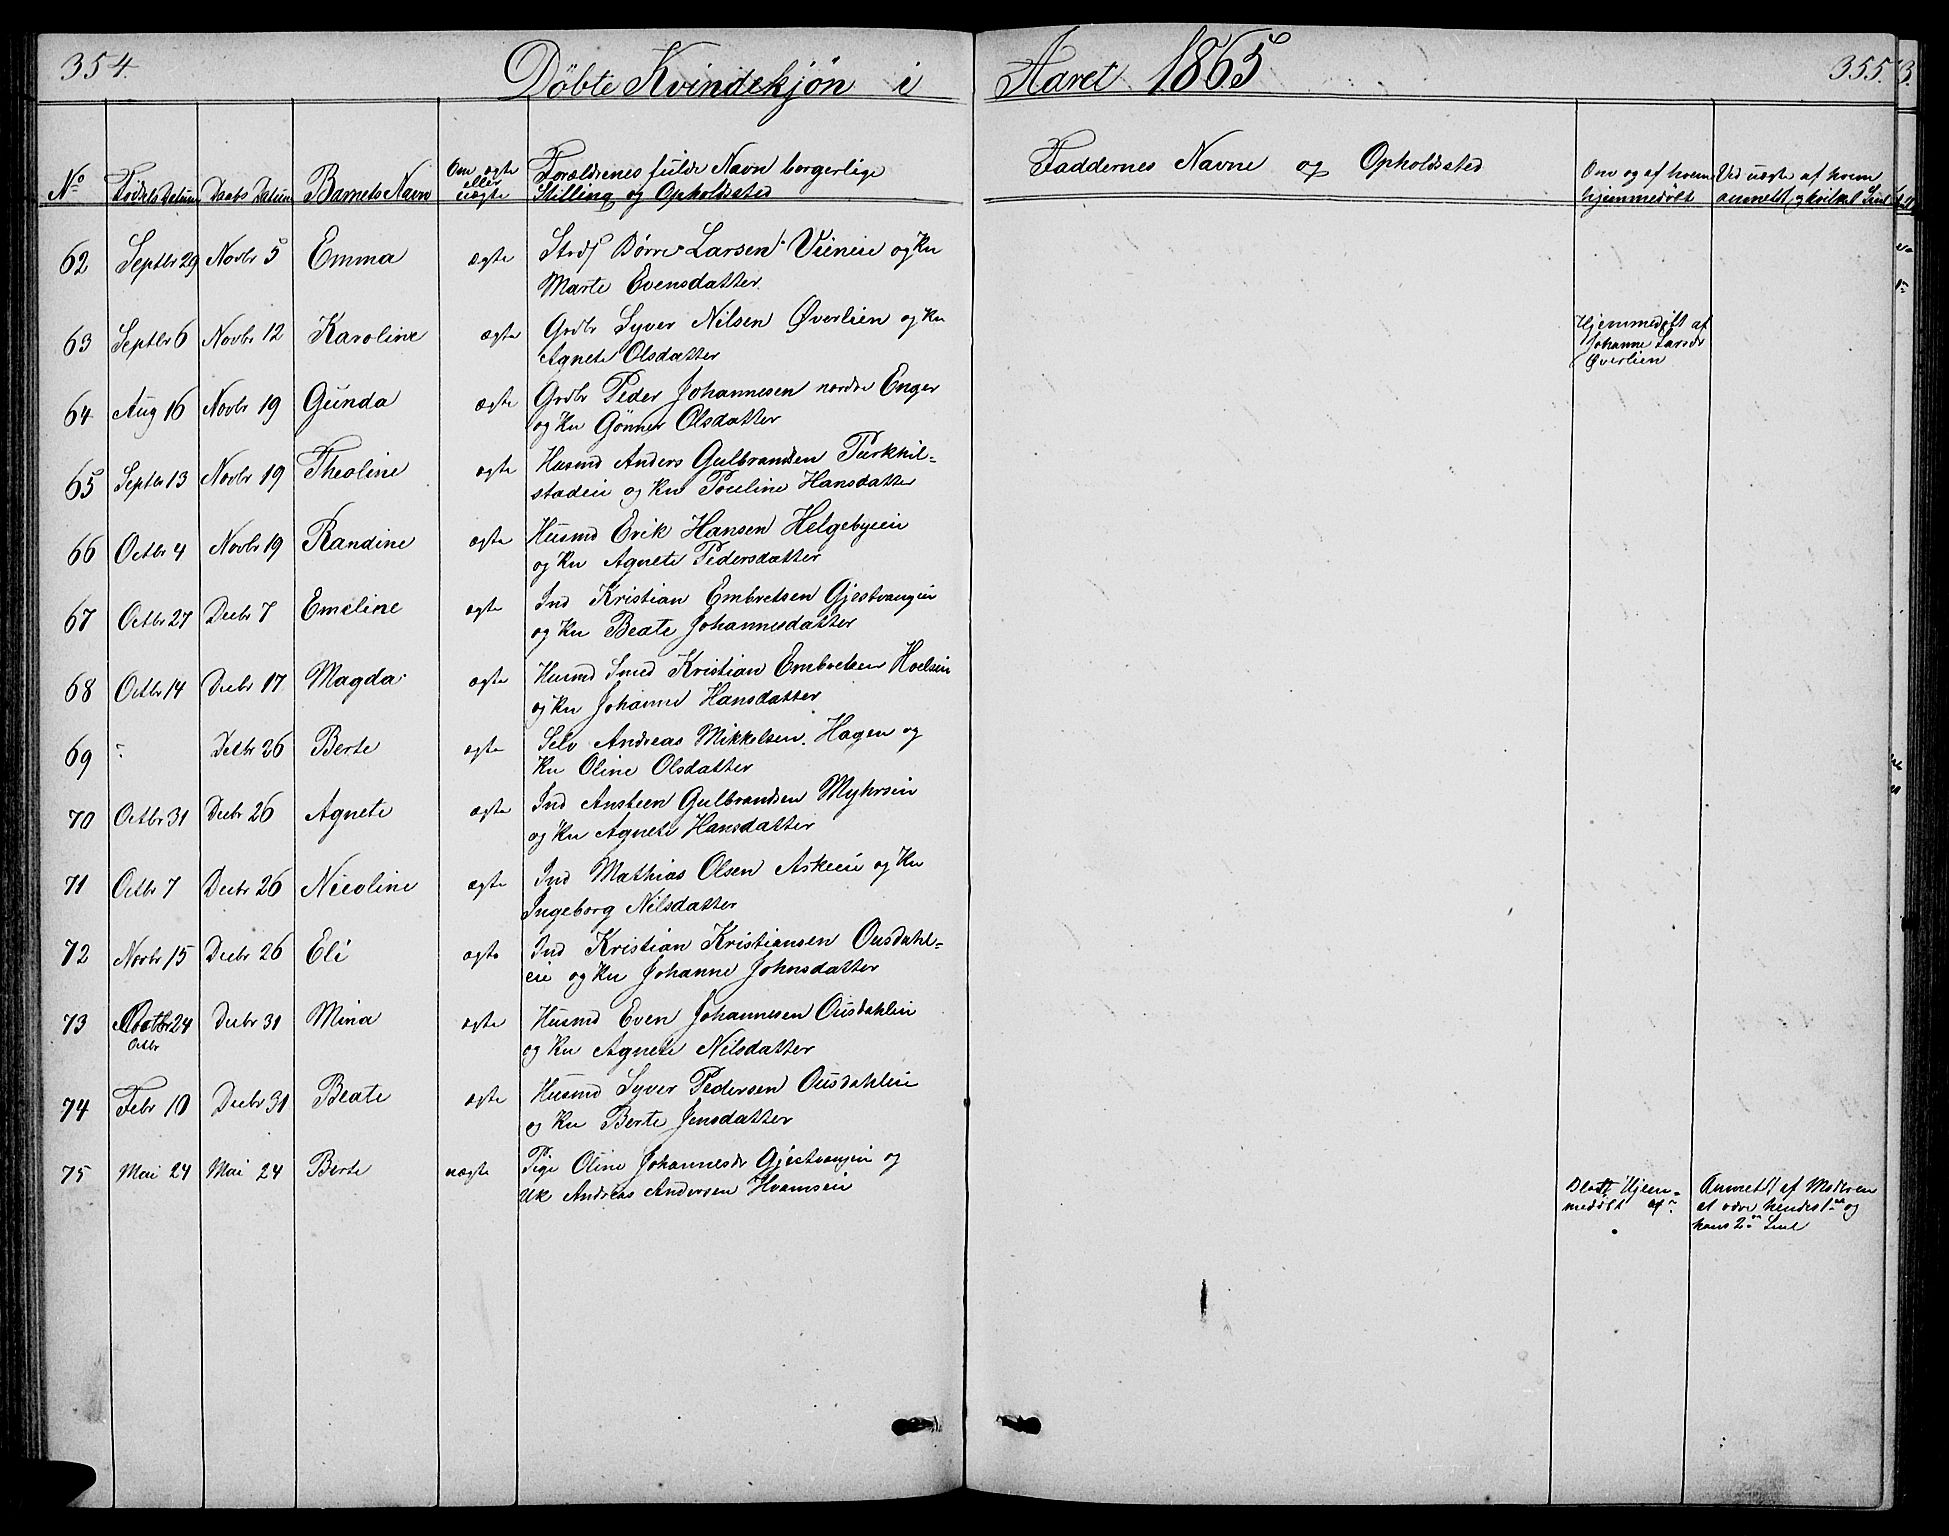 354.
Döbte Kvindekjön i Aaret 1865
355.
No
Födsels Datum
Daabs Datum
Barnets Navn
Om ægte eller uægte
Forældrenes fulde Navn borgerlige
Stilling og Opholdssted
Faddernes Navne og Opholdssted
Om og af hvem
hjemmedøbt
Ved uægte af hvem
anmeldt og hvilket Leiel
62 Septbr 29 Novbr 5 Emma ægte Børre Larsen og Ku
Marte Evensdatter
63 Septbr 6 Novbr 12 Karoline ægte Grdbr Syver Nilsen Øverlien og Ku
Agnete Olsdatter
Hjemmedøbt af
Johanne Larsdr
Øverlien
64 Aug 16 Novbr 19 Gunda ægte Grdbr Peder Johannesen nordre Enger
og Ku Gønner Olsdatter
65 Septbr 13 Novbr 19 Theoline ægte Husmd Anders Gulbrandsen Turkhil-
stadeie og Ku Pouline Hansdatter
66 Octbr 4 Novbr 19 Randine ægte Husmd Erik Hansen Helgebyeie
og Ku Agnete Pedersdatter
67 Octbr 27 Decbr 7 Emeline ægte Ind Kristian Embretsen Gjestvangeie
og Ku Beate Johannesdatter
68 Octbr 14 Decbr 17 Magda ægte Husmd Smed Kristian Embretsen Hoelseie
og Ku Johanne Hansdatter
69 Decbr 26 Berte ægte Selv Andreas Mikkelsen Hagen og
Ku Oline Olsdatter
70 Octbr 31 Decbr 26 Agnete ægte Ind Ansteen Gulbrandsen Myhrseie
og Ku Agnete Hansdatter
71 Octbr 7 Decbr 26 Nicoline ægte Ind Mathias Olsen Askeeie og Ku
Ingeborg Nilsdatter
72 Novbr 15 Decbr 26 Eli ægte Ind Kristian Kristiansen Ousdahl-
eie og Ku Johanne Johnsdatter
73 24 Decbr 31 Mina ægte Husmd Even Johannesen Ousdahleie
Octbr
og Ku Agnete Nilsdatter
74 Febr 10 Decbr 31 Beate ægte Husmd Syver Pedersen Ousdahleie
og Ku Berte Jensdatter
75 Mai 24 Mai 24 Berte uægte Pige Oline Johannesdr Gjestvangeie og
Uk Andreas Andersen Hvamseie
Blott Hjem-
medøbt af
Anmeldt af Moderen
at være hendes 1ste og
hans 2det Leiel